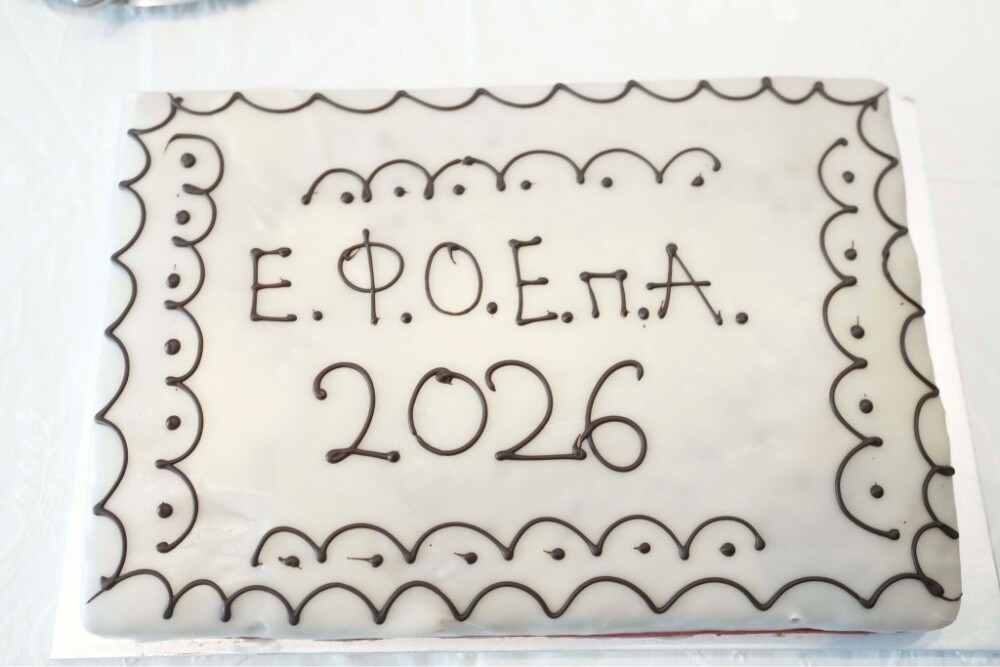 Ε.Φ.Ο.Ε.π.Α.
2026